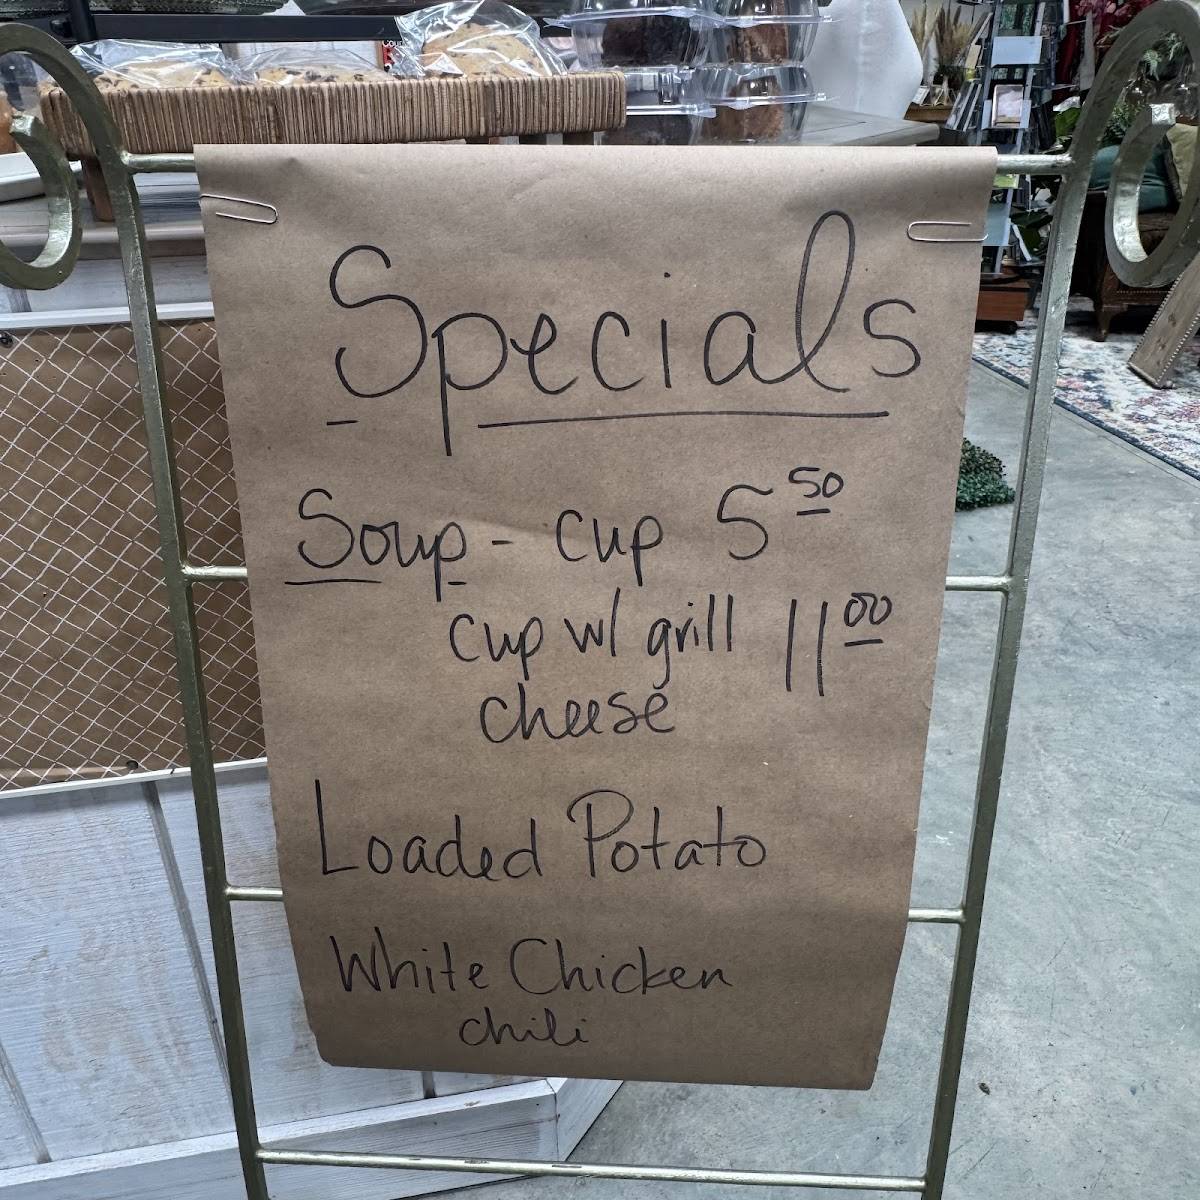 Specials
Soup - cup 5 50
cup w/ grill 11 00
cheese
Loaded Potato
White Chicken
chili